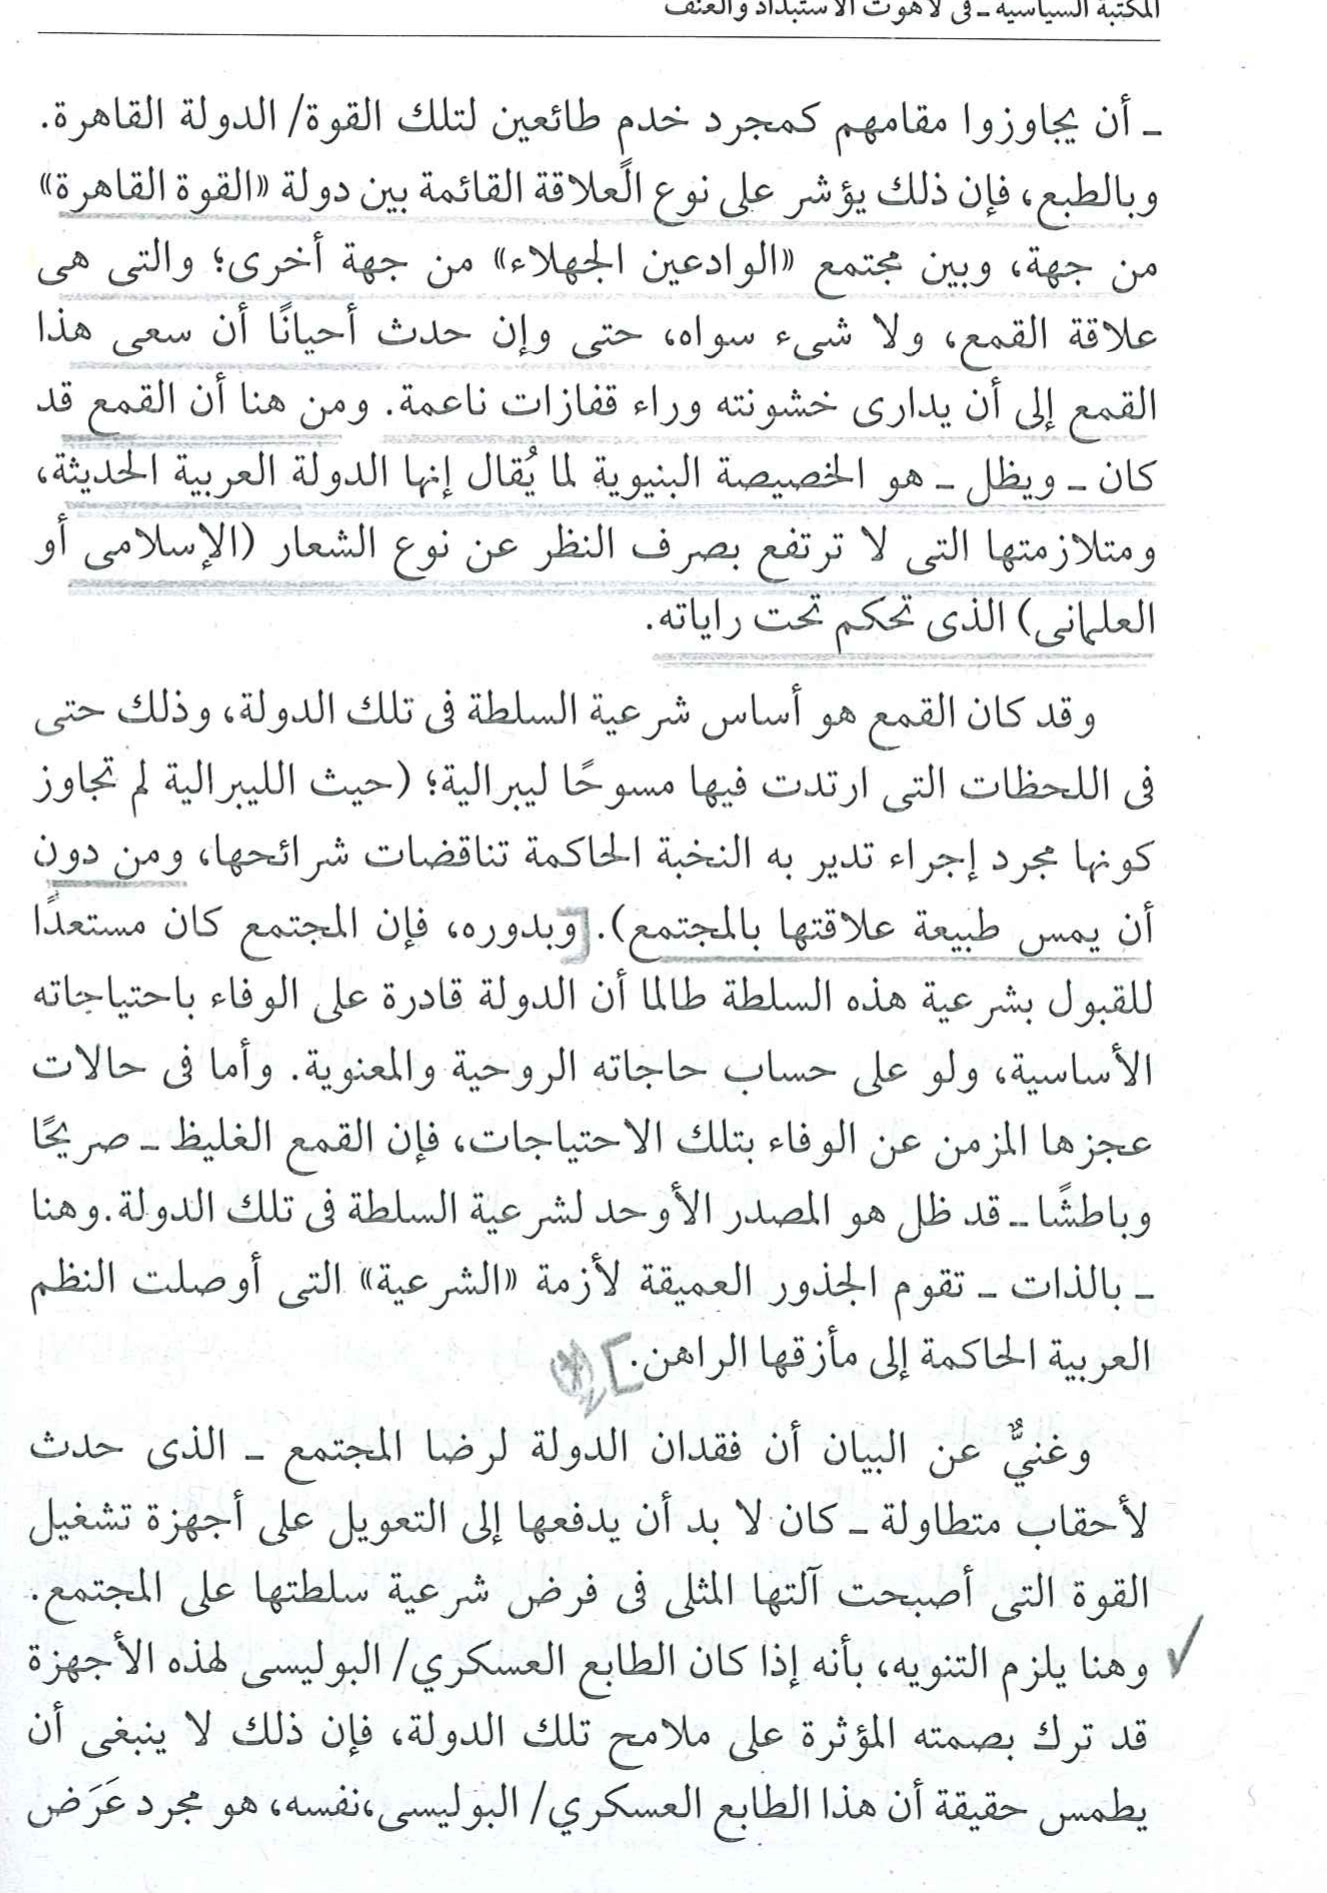 المكتبة السياسية ـ فى لاهوت الاستبداد والعنف
ـ أن يجاوزوا مقامهم كمجرد خدمٍ طائعين لتلك القوة/ الدولة القاهرة.
وبالطبع، فإن ذلك يؤشر على نوع العلاقة القائمة بين دولة «القوة القاهرة»
من جهة، وبين مجتمع «الوادعين الجهلاء» من جهة أخرى؛ والتى هى
علاقة القمع، ولا شىء سواه، حتى وإن حدث أحيانًا أن سعى هذا
القمع إلى أن يدارى خشونته وراء قفازات ناعمة. ومن هنا أن القمع قد
كان ـ ويظل ـ هو الخصيصة البنيوية لما يُقال إنها الدولة العربية الحديثة،
ومتلازمتها التى لا ترتفع بصرف النظر عن نوع الشعار (الإسلامى أو
العلمانى) الذى تحكم تحت راياته.
وقد كان القمع هو أساس شرعية السلطة فى تلك الدولة، وذلك حتى
فى اللحظات التى ارتدت فيها مسوحًا ليبرالية؛ (حيث الليبرالية لم تجاوز
كونها مجرد إجراء تدير به النخبة الحاكمة تناقضات شرائحها، ومن دون
أن يمس طبيعة علاقتها بالمجتمع). [وبدوره، فإن المجتمع كان مستعدًا
للقبول بشرعية هذه السلطة طالما أن الدولة قادرة على الوفاء باحتياجاته
الأساسية، ولو على حساب حاجاته الروحية والمعنوية. وأما فى حالات
عجزها المزمن عن الوفاء بتلك الاحتياجات، فإن القمع الغليظ ـ صريحًا
وباطشًا ـ قد ظل هو المصدر الأوحد لشرعية السلطة فى تلك الدولة. وهنا
ـ بالذات ـ تقوم الجذور العميقة لأزمة «الشرعية» التى أوصلت النظم
العربية الحاكمة إلى مأزقها الراهن.]
وغنيٌّ عن البيان أن فقدان الدولة لرضا المجتمع ـ الذى حدث
لأحقاب متطاولة ـ كان لا بد أن يدفعها إلى التعويل على أجهزة تشغيل
القوة التى أصبحت آلتها المثلى فى فرض شرعية سلطتها على المجتمع.
وهنا يلزم التنويه، بأنه إذا كان الطابع العسكري/ البوليسى لهذه الأجهزة
قد ترك بصمته المؤثرة على ملامح تلك الدولة، فإن ذلك لا ينبغى أن
يطمس حقيقة أن هذا الطابع العسكري/ البوليسى،نفسه، هو مجرد عَرَض